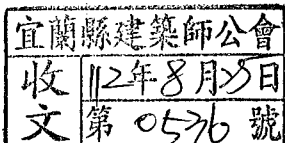 宜蘭縣建築師公會
收文
112年8月25日
第0536號